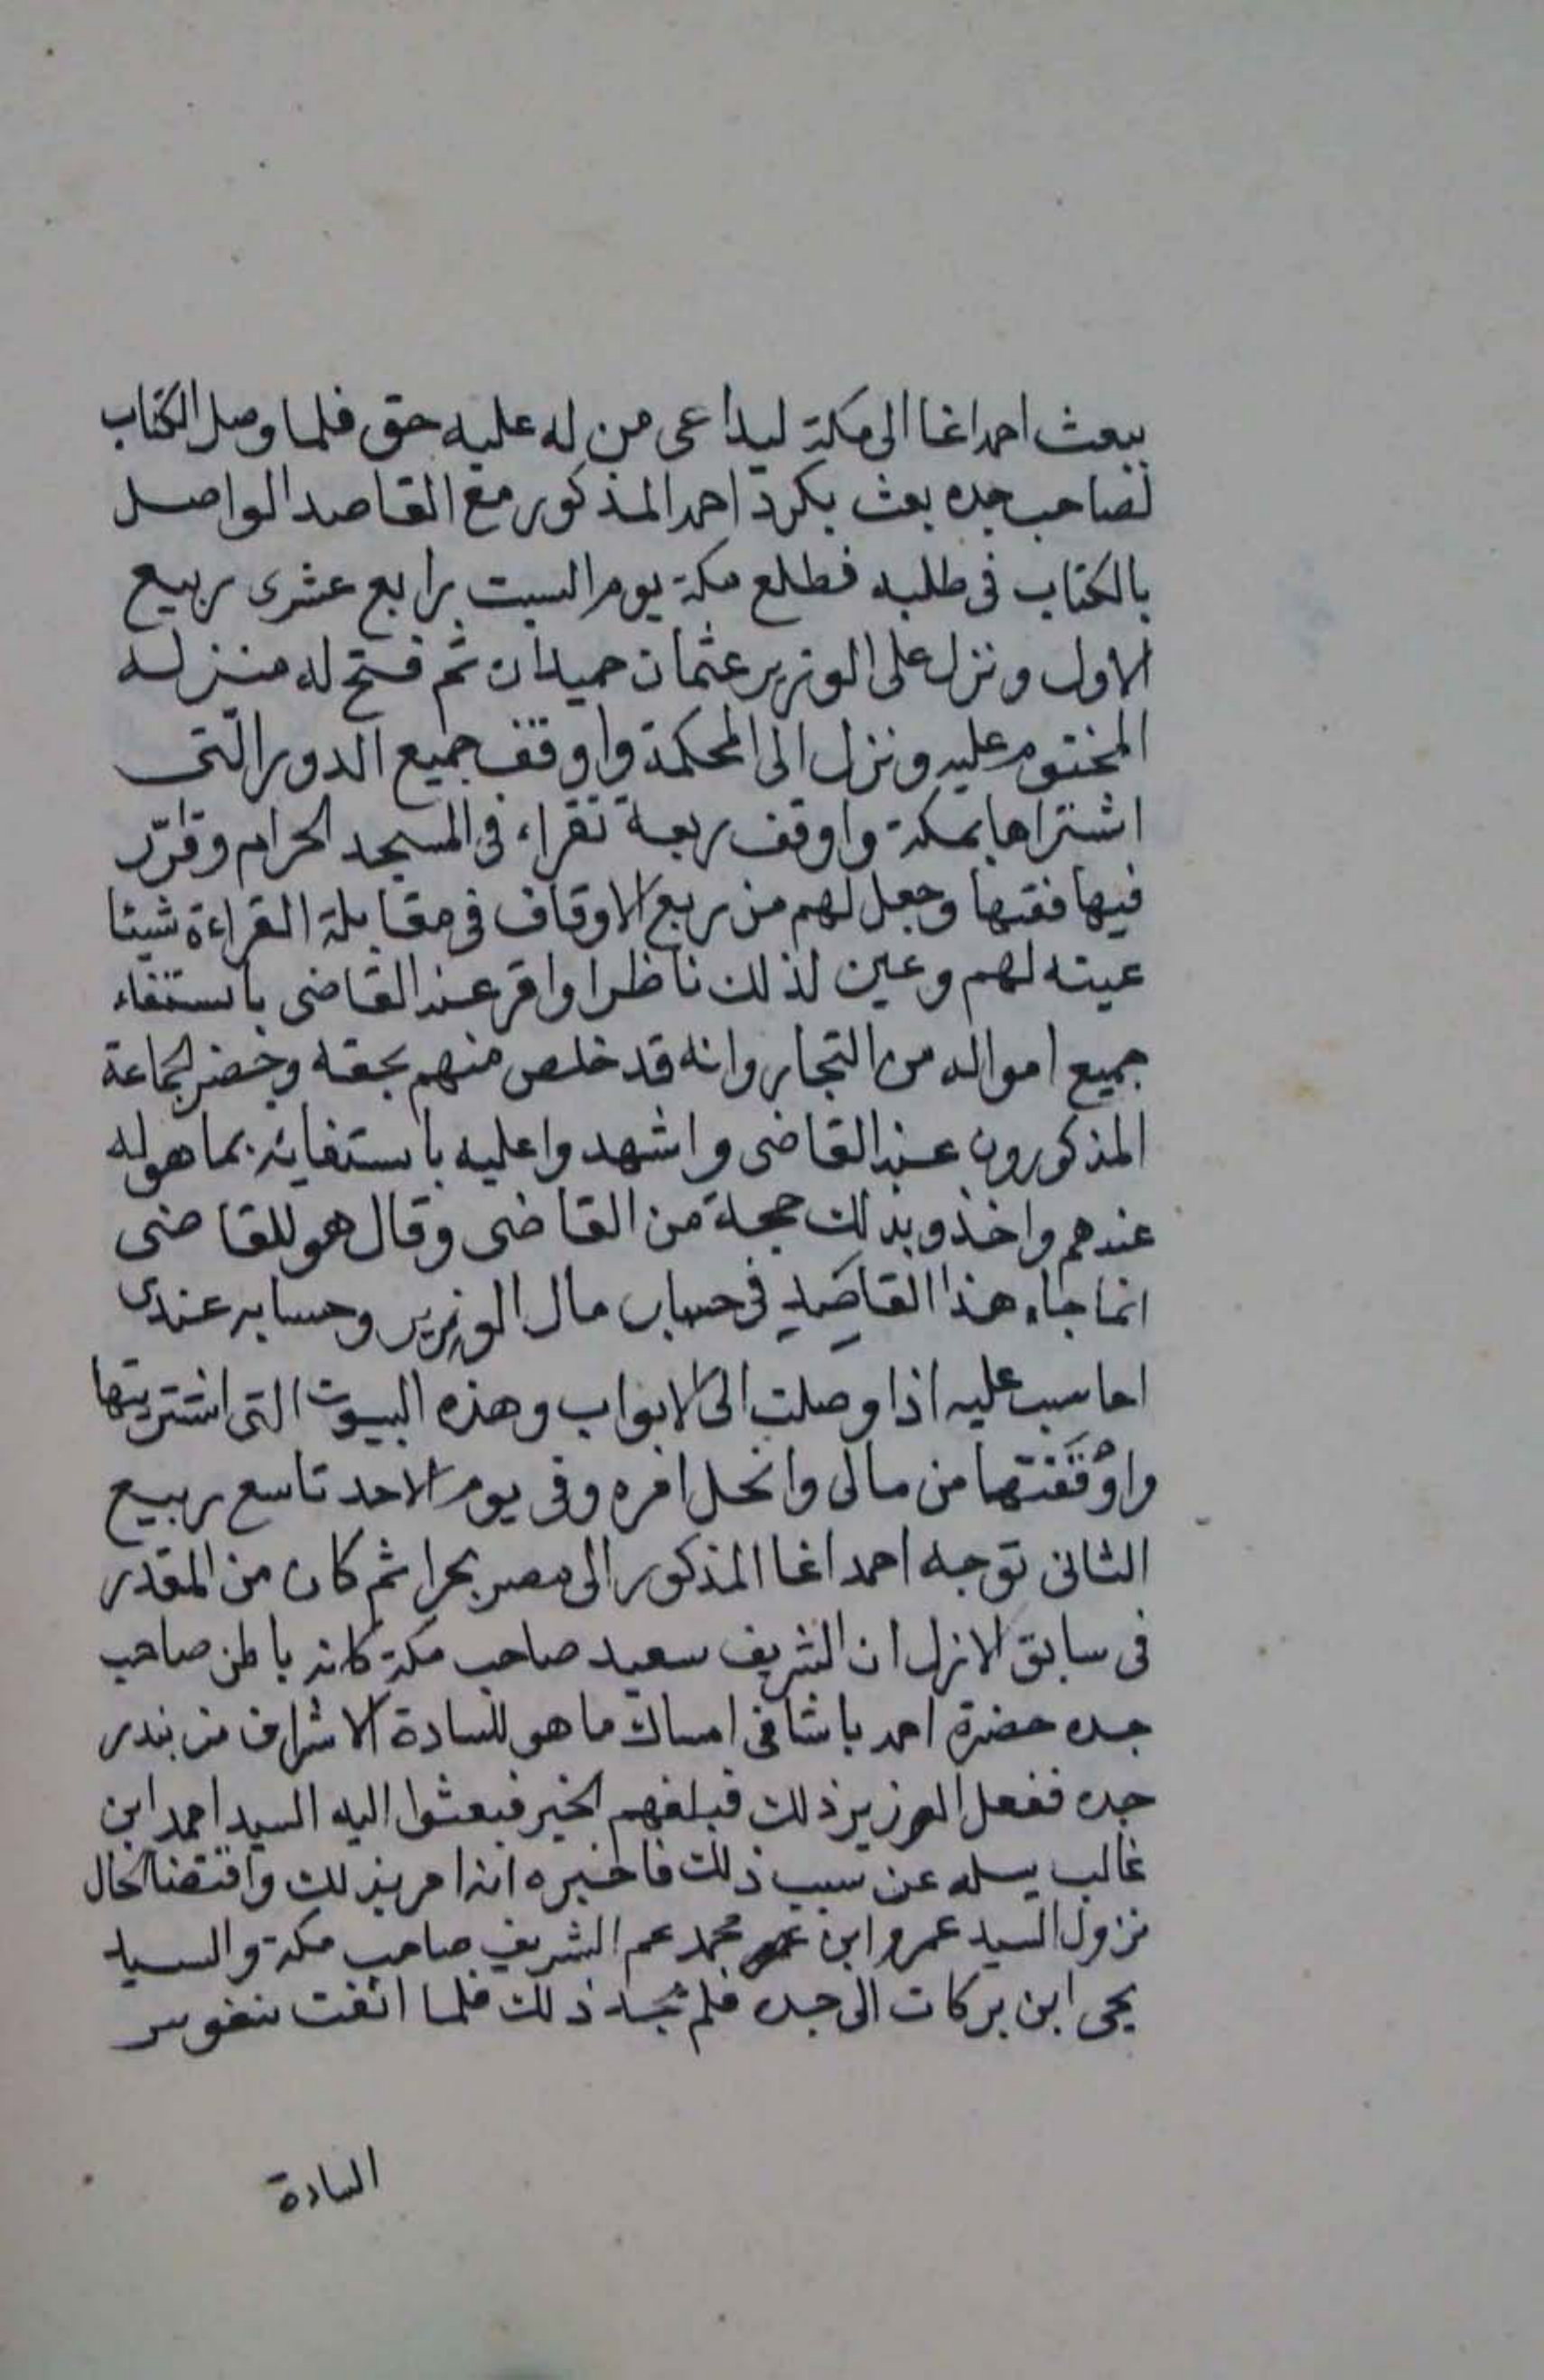 يبعث احمد اغا الى مكة ليداعى من له عليه حق فلما وصل الكتاب
لصاحب جده بعث بكرد احمد المذكور مع القاصد الواصل
بالكتاب فى طلبه فطلع مكة يوم السبت رابع عشرى ربيع
الاول ونزل على الوزير عثمان حميدان ثم فتح له منزله
المختوم عليه ونزل الى المحكمة واوقف جميع الدور التى
اشتراها بمكة واوقف ربعة تقراء فى المسجد الحرام وقرّر
فيها فقها وجعل لهم من ريع الاوقاف فى مقابلة القراءة شيئا
عينه لهم وعين لذلك ناظرا واقر عند القاضى باستفاء
جميع امواله من التجار وانه قد خلص منهم بحقه وحضر الجماعة
المذكورون عند القاضى واشهدوا عليه باستفايه بما هو له
عندهم واخذو بذلك حجة من القاضى وقال هو للقاضى
انما جاء هذا القاصد فى حساب مال الوزير وحسابه عندى
احاسب عليه اذا وصلت الى الابواب وهذه البيوت التى اشتريتها
واوقفتها من مالى وانحل امره وفى يوم الاحد تاسع ربيع
الثانى توجه احمد اغا المذكور الى مصر بحرا ثم كان من المقدر
فى سابق الازل ان الشريف سعيد صاحب مكة كانه باطن صاحب
جده حضرة احمد باشا فى امساك ما هو للسادة الاشراف من بندر
جده ففعل الوزير ذلك فبلغهم الخبر فبعثوا اليه السيد احمد ابن
غالب يسله عن سبب ذلك فاخبره انه امر بذلك واقتضا الحال
نزول السيد عمرو ابن محمد عم الشريف صاحب مكة والسيد
يحى ابن بركات الى جده فلم يجد ذلك فلما انفت نفوس
السادة